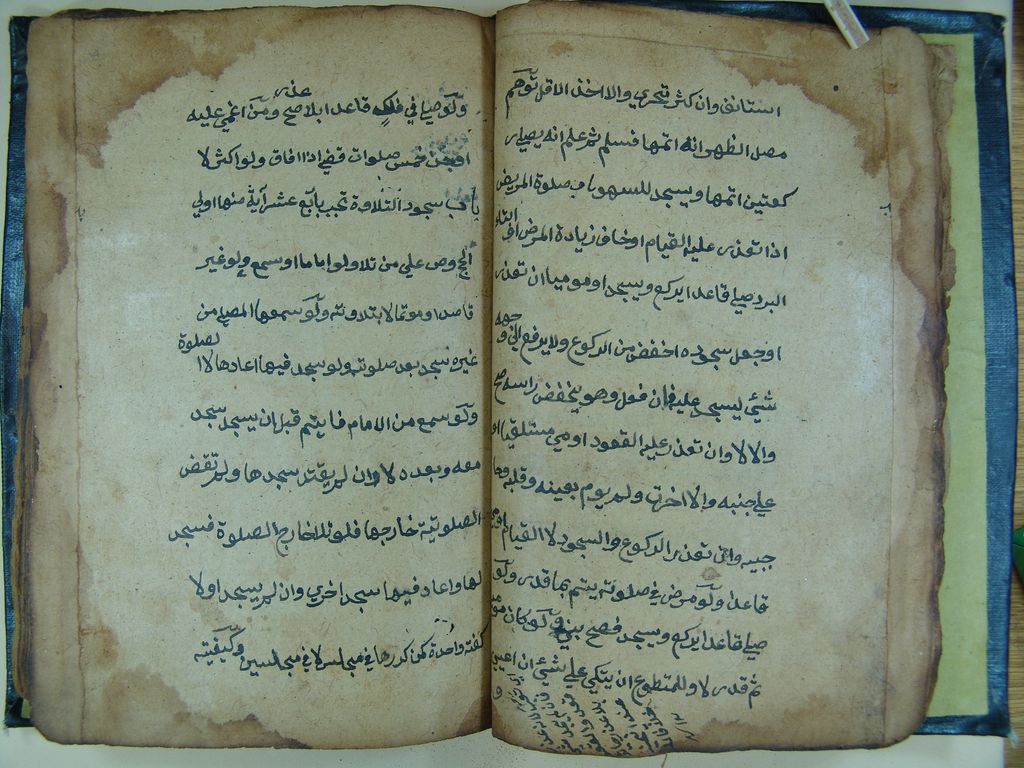 استانف وان كثر تحري والا اخذ الاقل توهم
مصل الظهر انه اتمها فسلم ثم علم انه يصلي ر
كعتين اتمها ويسجد للسهو باب صلوة المريض
اذا تعذر عليه القيام او خاف زيادة المرض او ابطاء
البرد صلي قاعدا يركع ويسجد او موميا ان تعذر
او جعل سجوده اخفض من الركوع ولا يرفع الي وجهه
شئ ليسجد عليه فان فعل وهو يخفض راسه صح
والا لا وان تعذر عليه القعود اومي مستلقيا او
علي جنبه والا اخرت ولم يوم بعينه وقلبه وحا
جبيه وان تعذر الركوع والسجود لا القيام اومي
قاعدا ولو مرض في صلوته يتم بما قدر ولو
صلي قاعدا يركع ويسجد فصح بني ولو كان موميا
ثم قدر لا وللمتطوع ان يتكي علي شيئ ان اعيي
ولو صلي في فلك قاعدا بلا عذر صح ومن اغمي عليه
او جن خمس صلوات قضي اذا افاق ولو اكثر لا
باب سجود التلاوة تجب باربع عشر آية منها اولي
الحج وص علي من تلا ولو اماما او سمع ولو غير
قاصدا او موتما لا بتلاوته ولو سمعها المصلي من
غيره سجد بعد صلوته ولو سجد فيها اعادها لا الصلوة
ولو سمع من الامام فايتم قبل ان يسجد سجد
معه وبعده لا وان لم يقتد سجدها ولم تقض
الصلوتية خارجها فلو تلا خارج الصلوة فسجد
لها واعاد فيها سجد اخري وان لم يسجد اولا
كفته واحدة كمن كررها في مجلس لا في مجلسين وكيفيته